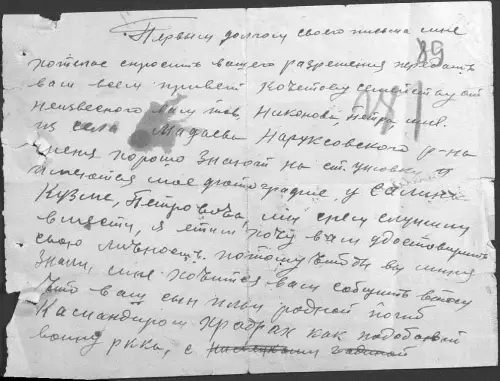 Первым долгом своего письма мне
89
хотелос спросить вашего разрешения передать
вам всем привет почетому семейству от
неизвесного вам тов. Никонова Петра
из села Мадаева Наруксовского р-на
меня хорошо знают на ст.
имеются мое фотографие, у
Кузме, Петровича, мы с ним служим
вместе, я етим хочу вам удостоверить
свою личность потому чтобы вы меня
знали, мне хочится вам сообщить в том
что ваш сын родной погиб
Камандиром храбрах как подобает
воину ркка, с